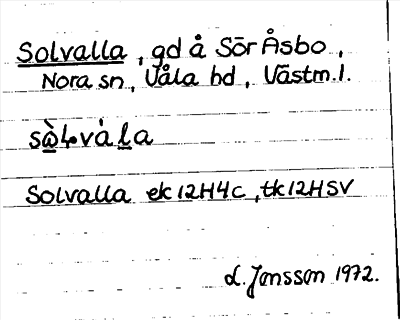 Solvalla, gd å Sör Åsbo,
Nora sn, Våla hd, Västm.l.
sὼⱡvála
Solvalla ek 12H4c, tk 12HSV
L. Jonsson 1972.